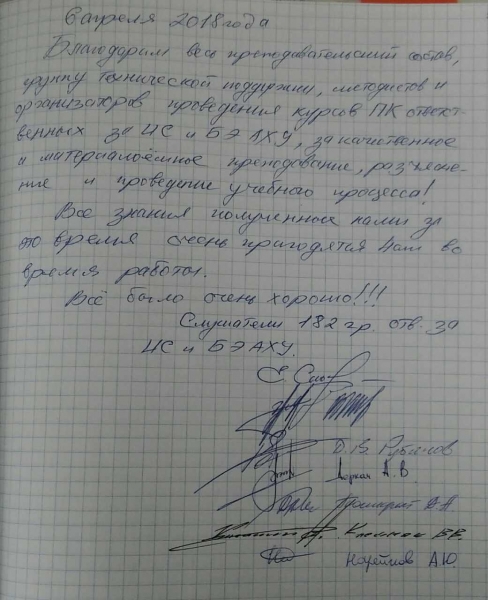 6 апреля 2018 года
Благодарим весь преподавательский состав,
группу технической поддержки, методистов и
организаторов проведения курсов ПК ответст-
венных за ЧС и БЭ АХУ, за качественное
и материалоёмное преподование, разъясне-
ние и проведение учебного процесса!
Все знания полученные нами за
это время очень пригодятся нам во
время работы.
Всё было очень хорошо!!!
Слушатели 182 гр. отв. за
ЧС и БЭ АХУ.
Е.
Д.В.
А. В.
В.В.
А.Ю.